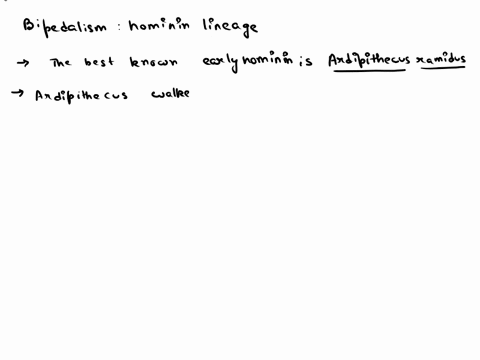 Bipedalism : hominin lineage
→ The best known early hominin is Ardipithecus ramidus
→ Ardipithecus walke